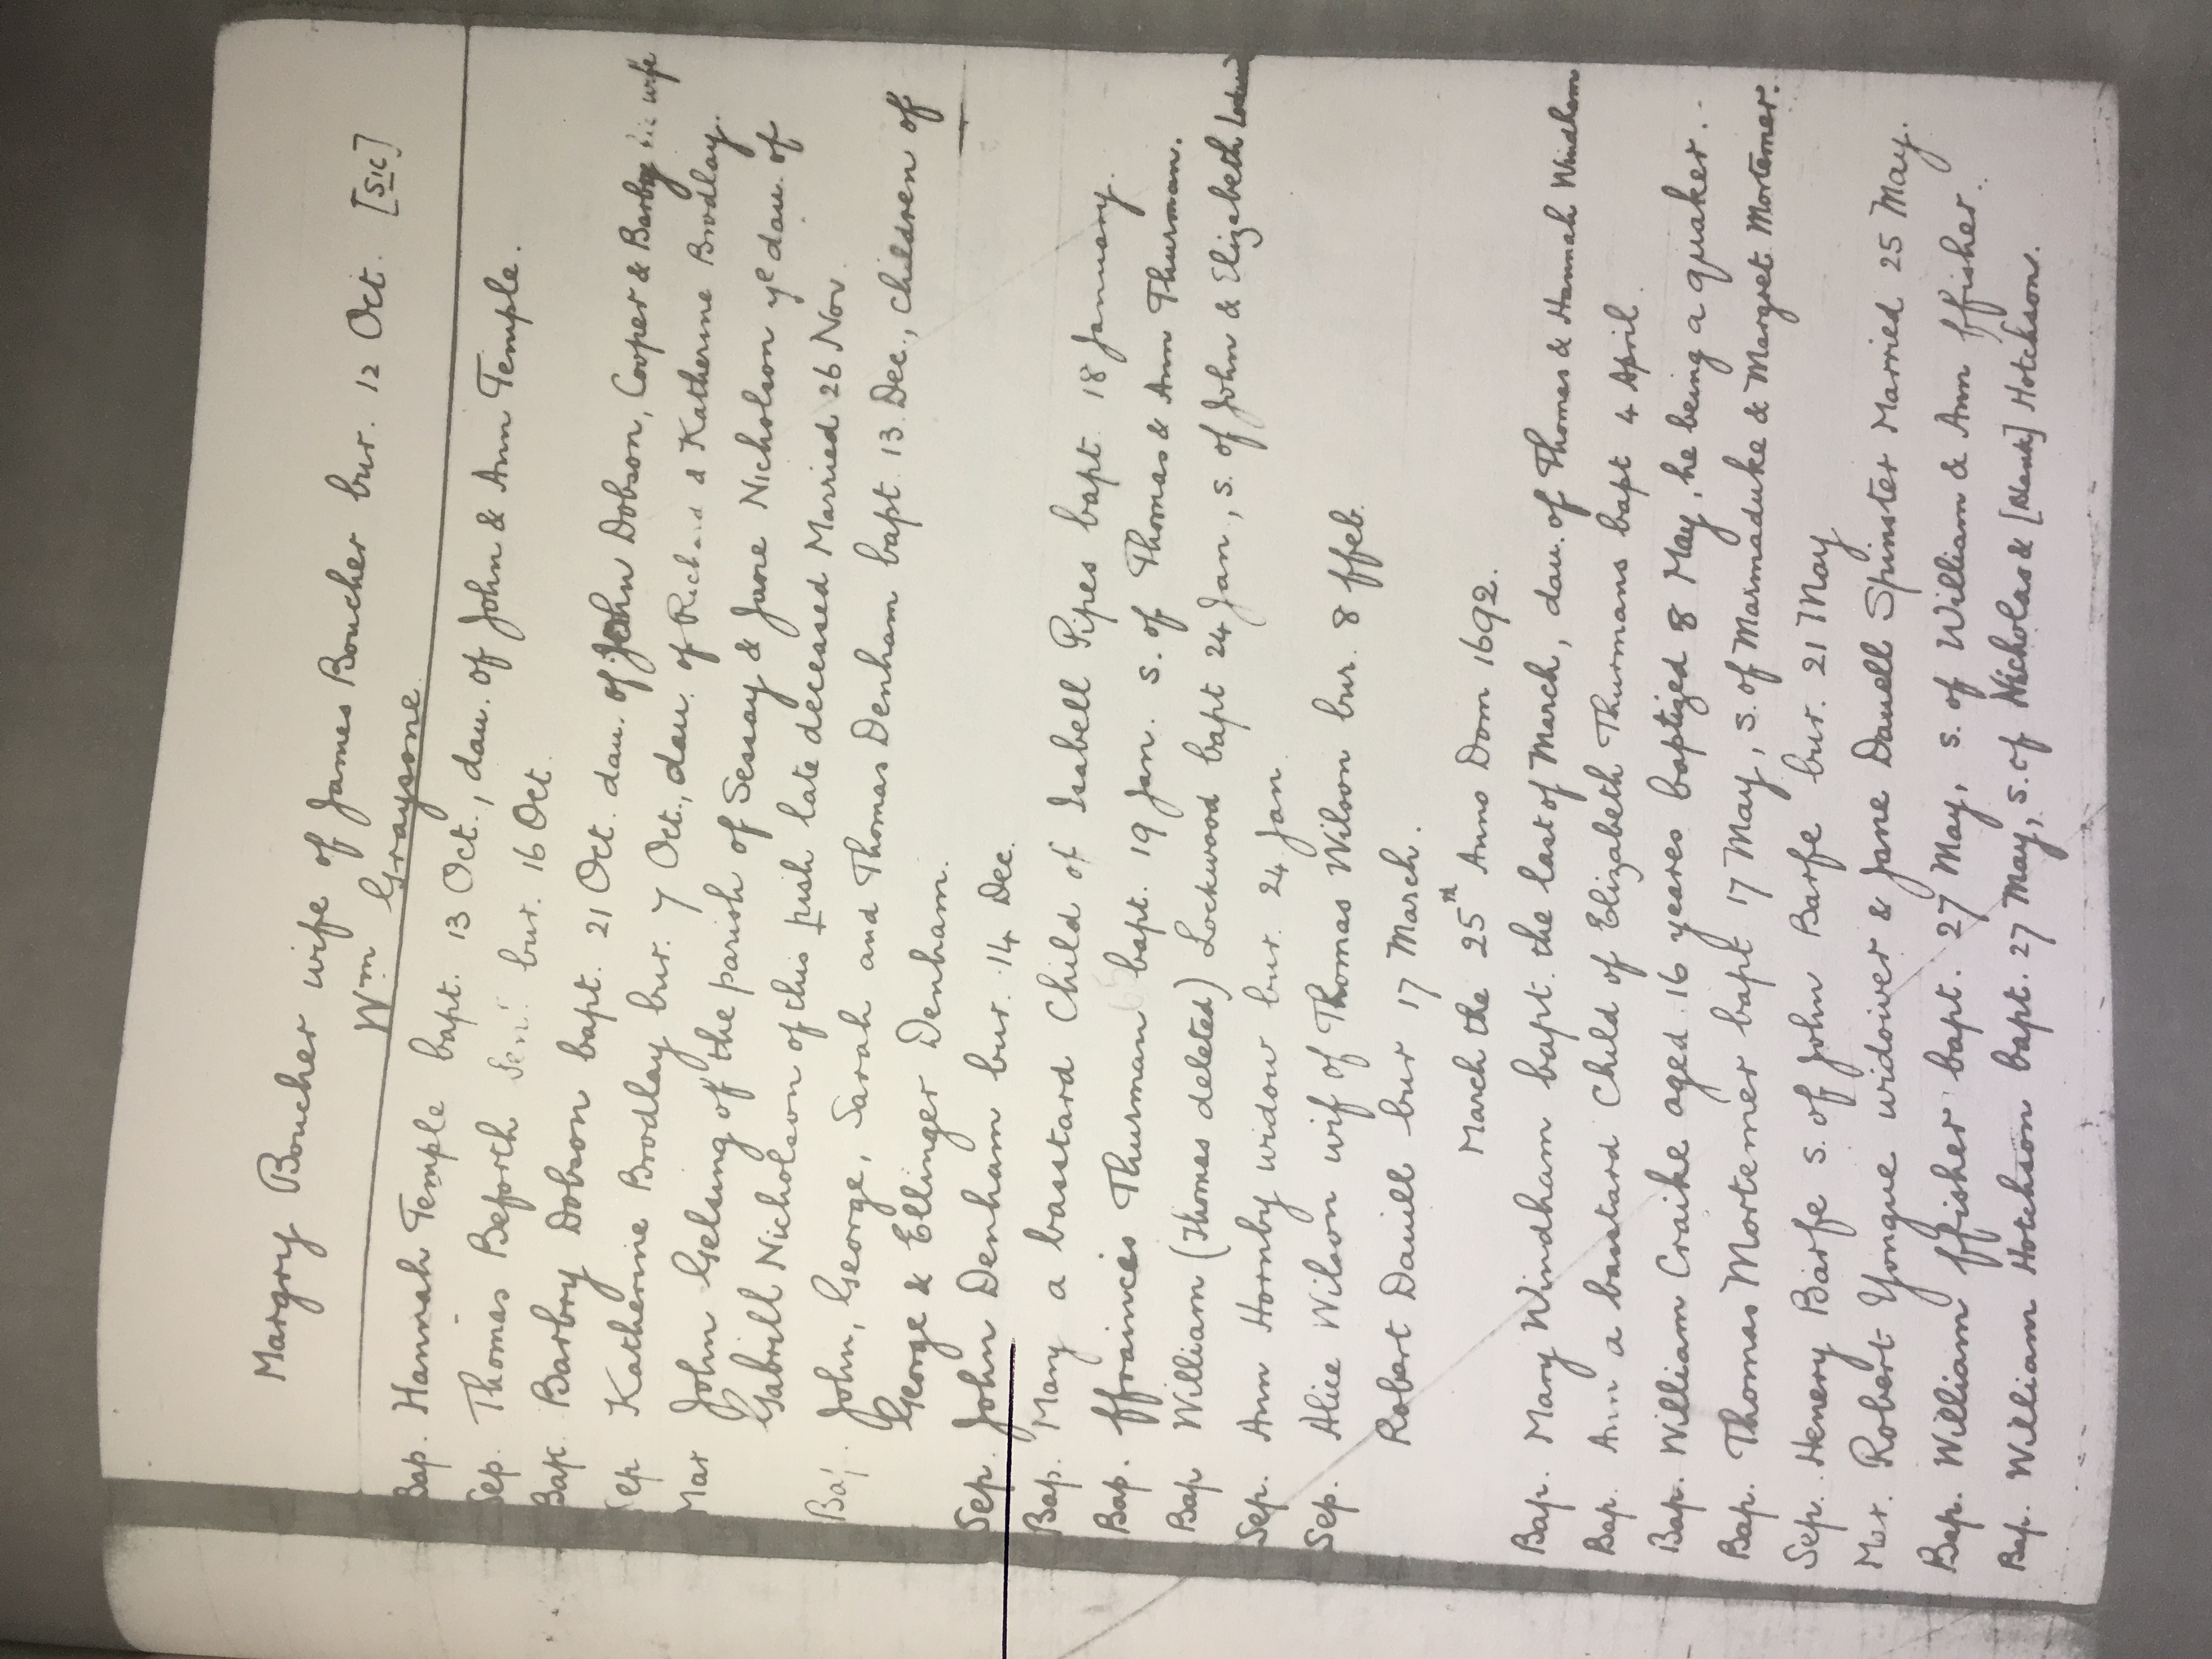 Margry Boucher wife of James Boucher bur. 12 Oct. [sic]
Wm Graysone
Bap. Hannah Temple bapt. 13 Oct., dau. of John & Ann Temple.
Sep. Thomas Beforth Senr. bur. 16 Oct.
Bap. Barbry Dobson bapt. 21 Oct. dau. of John Dobson, Cooper & Barbry his wife
Sep Katherine Brodlay bur. 7 Oct., dau. of Richard & Katherine Brodlay.
Mar John Gelsing of the parish of Sessay & Jane Nicholson ye dau. of
Gabrill Nicholson of this pish late deceased Married 26 Nov.
Bap. John, George, Sarah and Thomas Denham bapt. 13 Dec., children of
George & Ellinger Denham.
Sep. John Denham bur. 14 Dec.
Bap. Mary a bastard Child of Isabell Pipes bapt. 18 January.
Bap. ffrainces Thurman bapt. 19 Jan. s. of Thomas & Ann Thurman.
Bap William (Thomas deleted) Lockwood bapt 24 Jan, s. of John & Elizabeth
Sep. Ann Hornby widow bur. 24 Jan.
Sep. Alice Wilson wif of Thomas Wilson bur. 8 ffeb.
Robert Dauill bur 17 March.
March the 25th Anno Dom 1692.
Bap. Mary Windham bapt. the last of March, dau. of Thomas & Hannah Windham
Bap. Ann a basstard Child of Elizabeth Thurmans bapt 4 April.
Bap. William Craike aged 16 yeares baptized 8 May, he being a quaker.
Bap. Thomas Mortemer bapt 17 May, s. of Marmaduke & Margret Mortemer.
Sep. Henery Barfe s. of John Barfe bur. 21 May
Mar. Robert Yongue widower & Jane Dauell Spinster Married 25 May.
Bap. William ffisher bapt. 27 May, s. of William & Ann ffisher.
Bap. William Hotchson bapt. 27 May, s. of Nicholas & [blank] Hotchson.